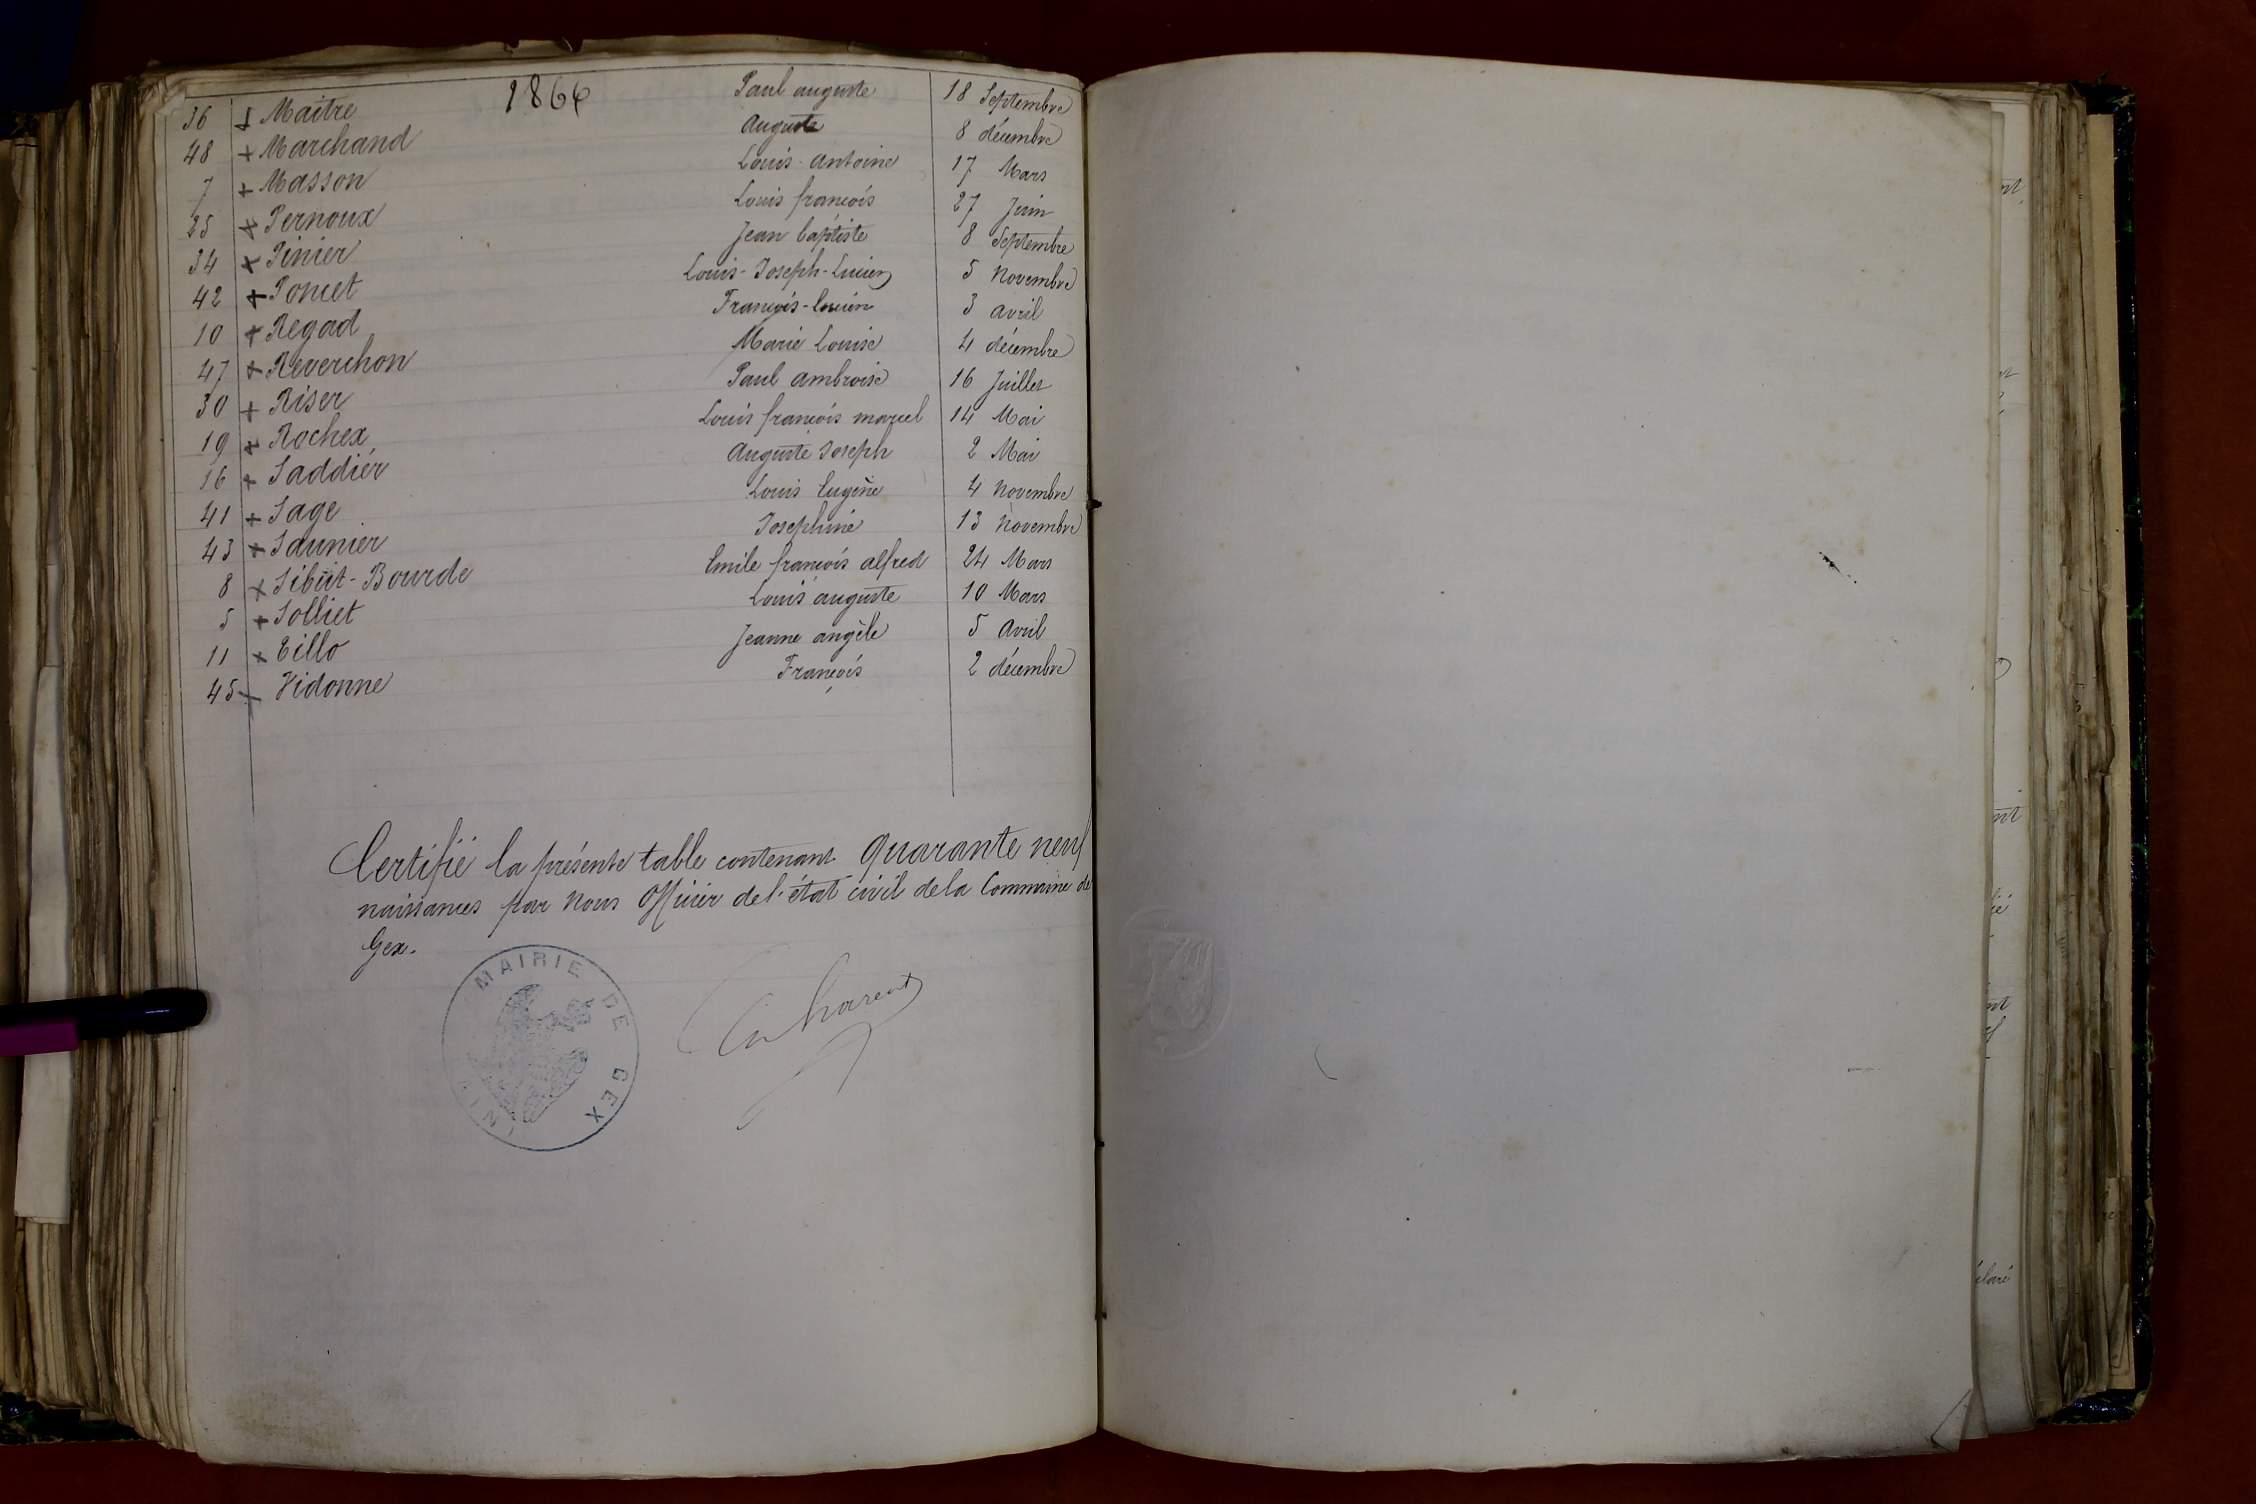 1866
36 Maitre Paul auguste 18 Septembre
48 Marchand auguste 8 décembre
7 Masson Louis-antoine 17 Mars
25 Pernoux Louis françois 27 Juin
34 Pinier Jean baptiste 8 Septembre
42 Poncet Louis-Joseph-Lucien 5 Novembre
10 Regad François-lucien 3 avril
47 Reverchon Marie Louise 4 décembre
30 Riser Paul ambroise 16 Juillet
19 Rochex Louis françois marcel 14 Mai
16 Saddiér Auguste Joseph 2 Mai
41 Sage Louis Eugène 4 Novembre
43 Saunier Josephine 13 Novembre
8 Sibüt-Bourde Emile françois alfred 24 Mars
5 Solliet Louis auguste 10 Mars
11 Tillo Jeanne angèle 5 avril
45 Vidonne François 2 décembre
Certifié la présente table contenant quarante neuf
naissances par nous Officier de l'état civil de la Commune de
Gex.
MAIRIE DE GEX (AIN)